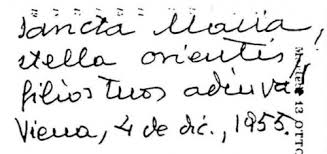 Sancta Maria,
stella orientis,
filios tuos adiuva!
Viena, 4 de dic., 1955.
13 OTTO